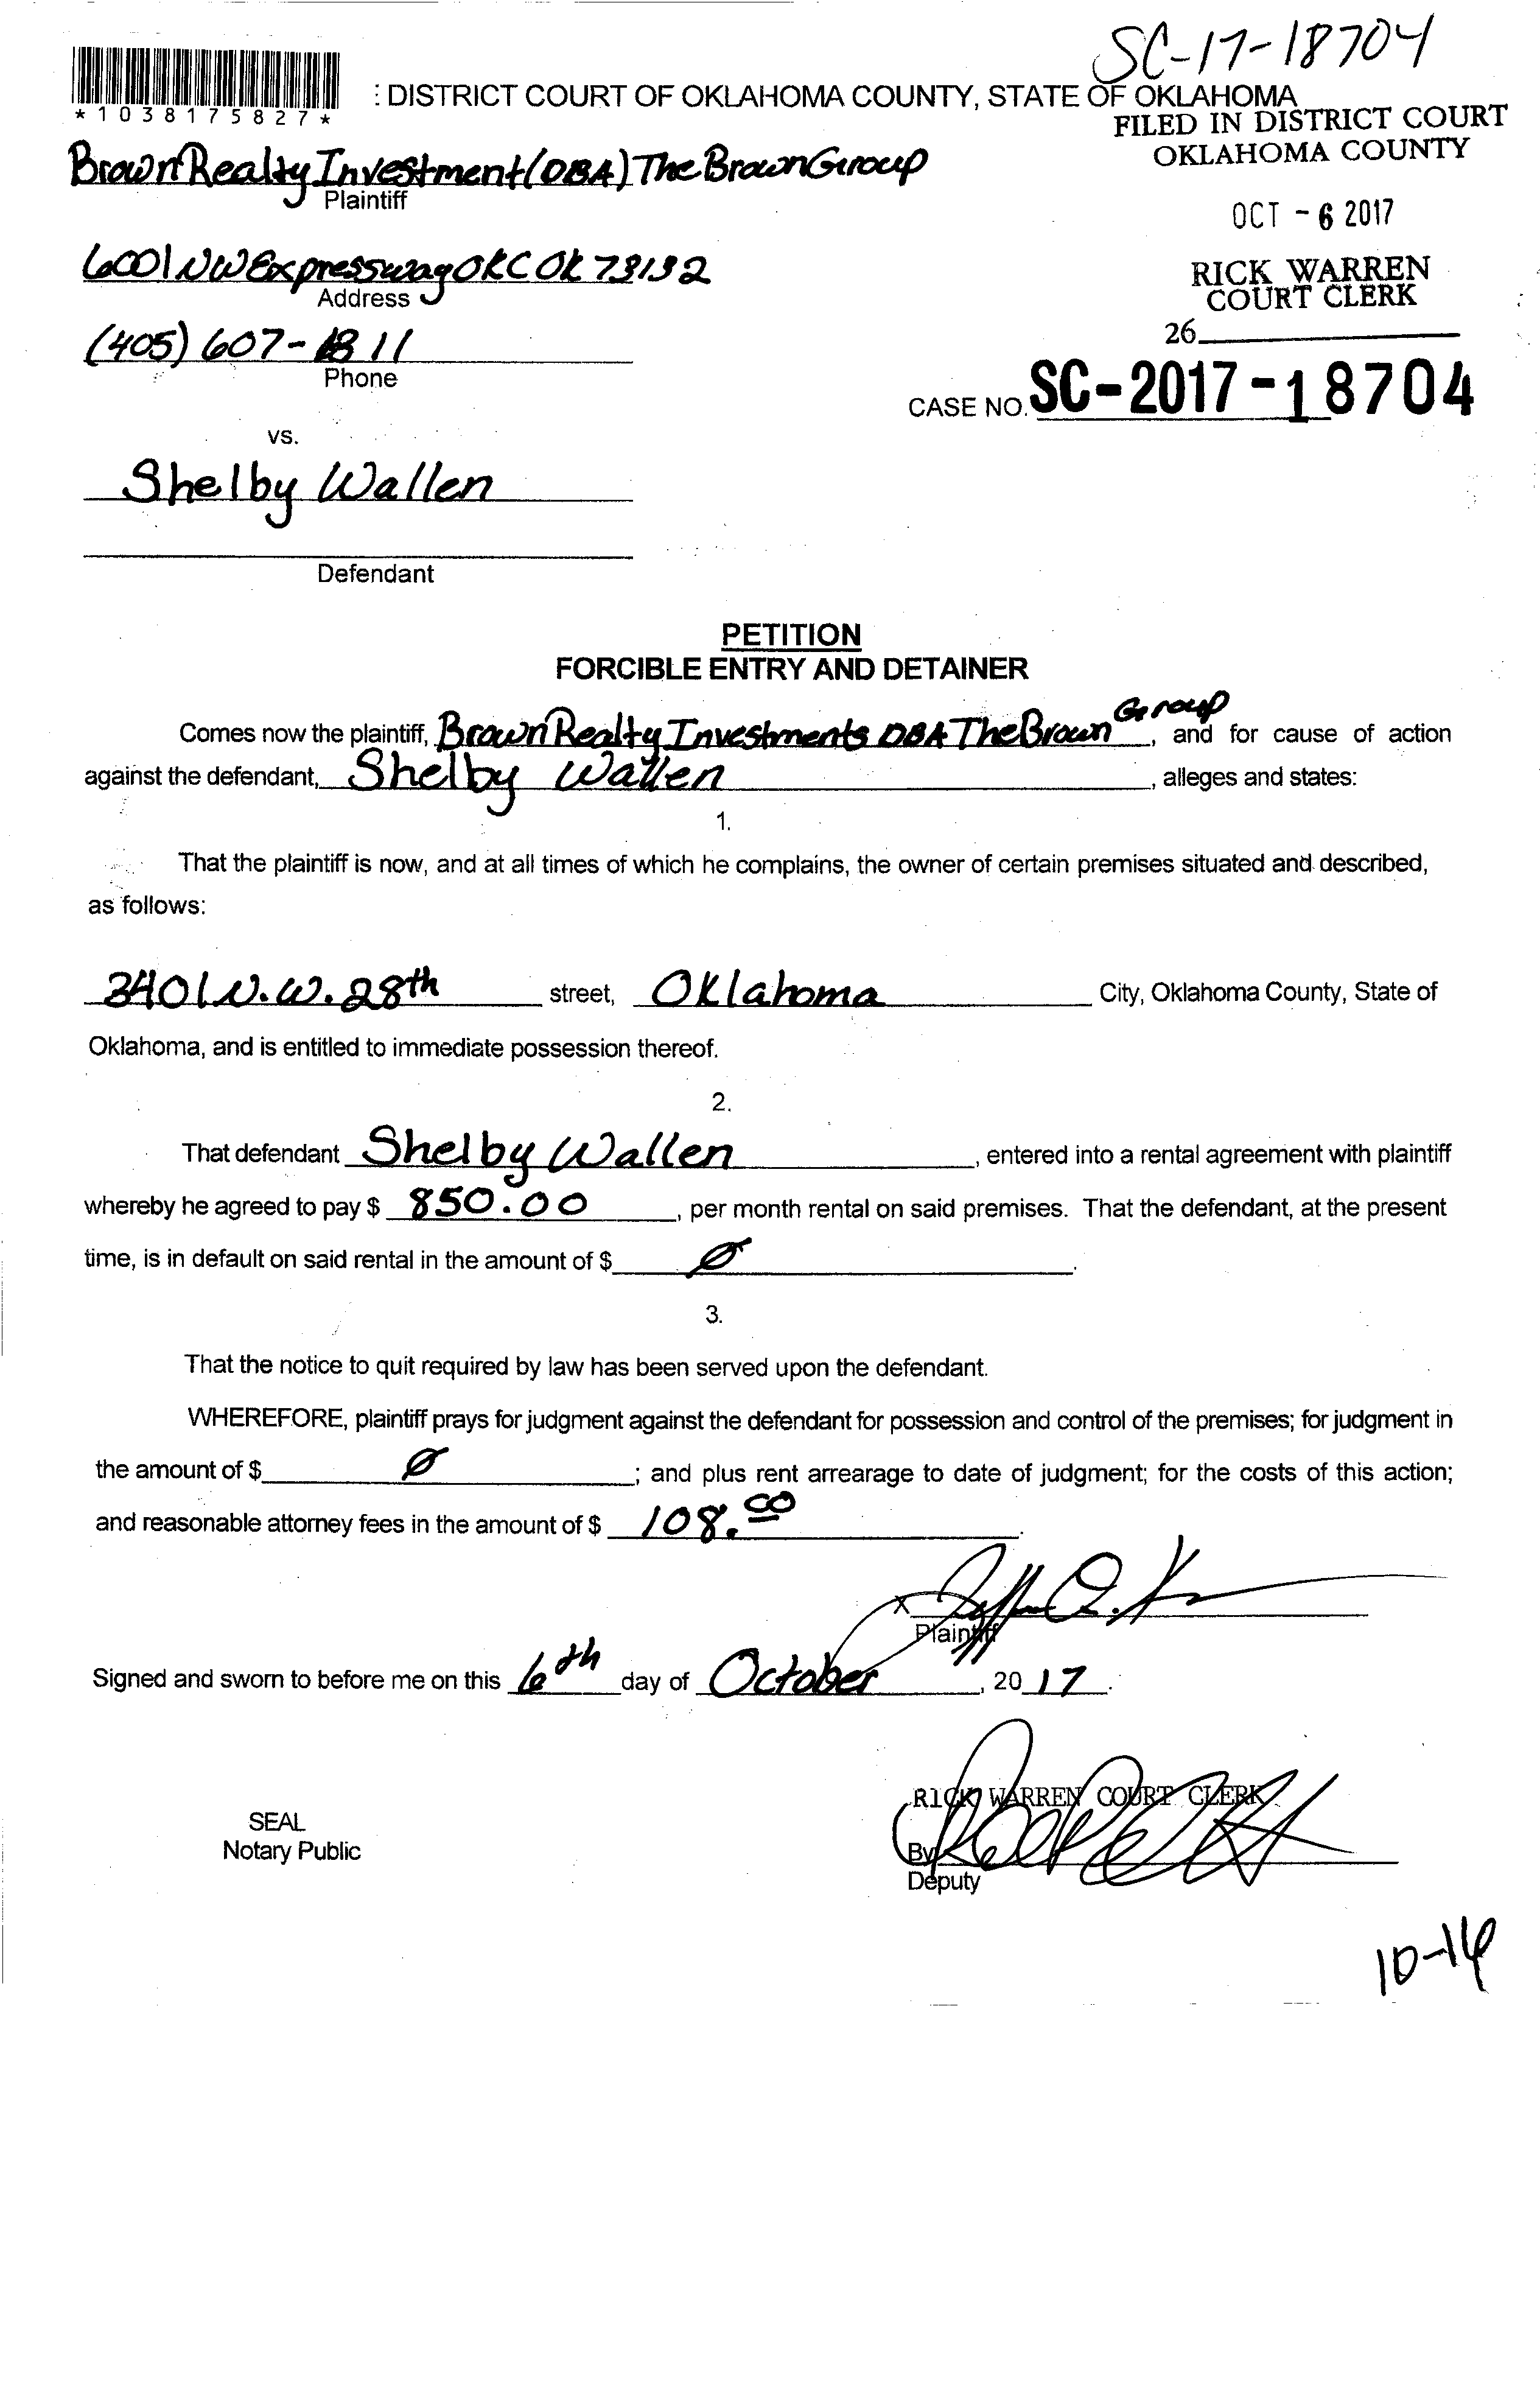 SC-17-18704
*1038175827*
: DISTRICT COURT OF OKLAHOMA COUNTY, STATE OF OKLAHOMA
FILED IN DISTRICT COURT
OKLAHOMA COUNTY
Brown Realty Investment (DBA) The Brown Group
Plaintiff
OCT - 6 2017
6001 NW Expressway OKC OK 73132
Address
RICK WARREN
COURT CLERK
26
(405) 607-1811
Phone
CASE NO. SC-2017-18704
vs.
Shelby Wallen
Defendant
PETITION
FORCIBLE ENTRY AND DETAINER
Comes now the plaintiff, Brown Realty Investments DBA The Brown Group, and for cause of action
against the defendant, Shelby Wallen, alleges and states:
1.
That the plaintiff is now, and at all times of which he complains, the owner of certain premises situated and described,
as follows:
3401 N.W. 28th street, Oklahoma City, Oklahoma County, State of
Oklahoma, and is entitled to immediate possession thereof.
2.
That defendant Shelby Wallen, entered into a rental agreement with plaintiff
whereby he agreed to pay $ 850.00, per month rental on said premises. That the defendant, at the present
time, is in default on said rental in the amount of $ Ø.
3.
That the notice to quit required by law has been served upon the defendant.
WHEREFORE, plaintiff prays for judgment against the defendant for possession and control of the premises; for judgment in
the amount of $ Ø; and plus rent arrearage to date of judgment; for the costs of this action;
and reasonable attorney fees in the amount of $ 108.00.
X
Plaintiff
Signed and sworn to before me on this 6th day of October, 2017.
RICK WARREN COURT CLERK
SEAL
Notary Public
By
Deputy
10-16